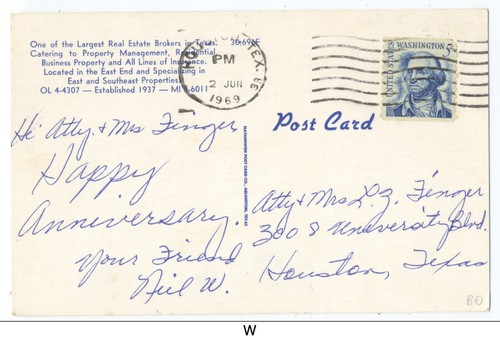 One of the Largest Real Estate Brokers in Texas. 36,696F
Catering to Property Management, Residential
Business Property and All Lines of Insurance.
Located in the East End and Specializing in
East and Southeast Properties.
OL 4-4307 — Established 1937 — MI 9-6011
TEX.
PM
2 JUN
1969
UNITED STATES
WASHINGTON 5c
Post Card
Hi Atty. & Mrs Finger
Happy
Anniversary.
Your Friend
Neil W.
Atty & Mrs D. Z. Finger
300 S University Blvd.
Houston, Texas
80
W